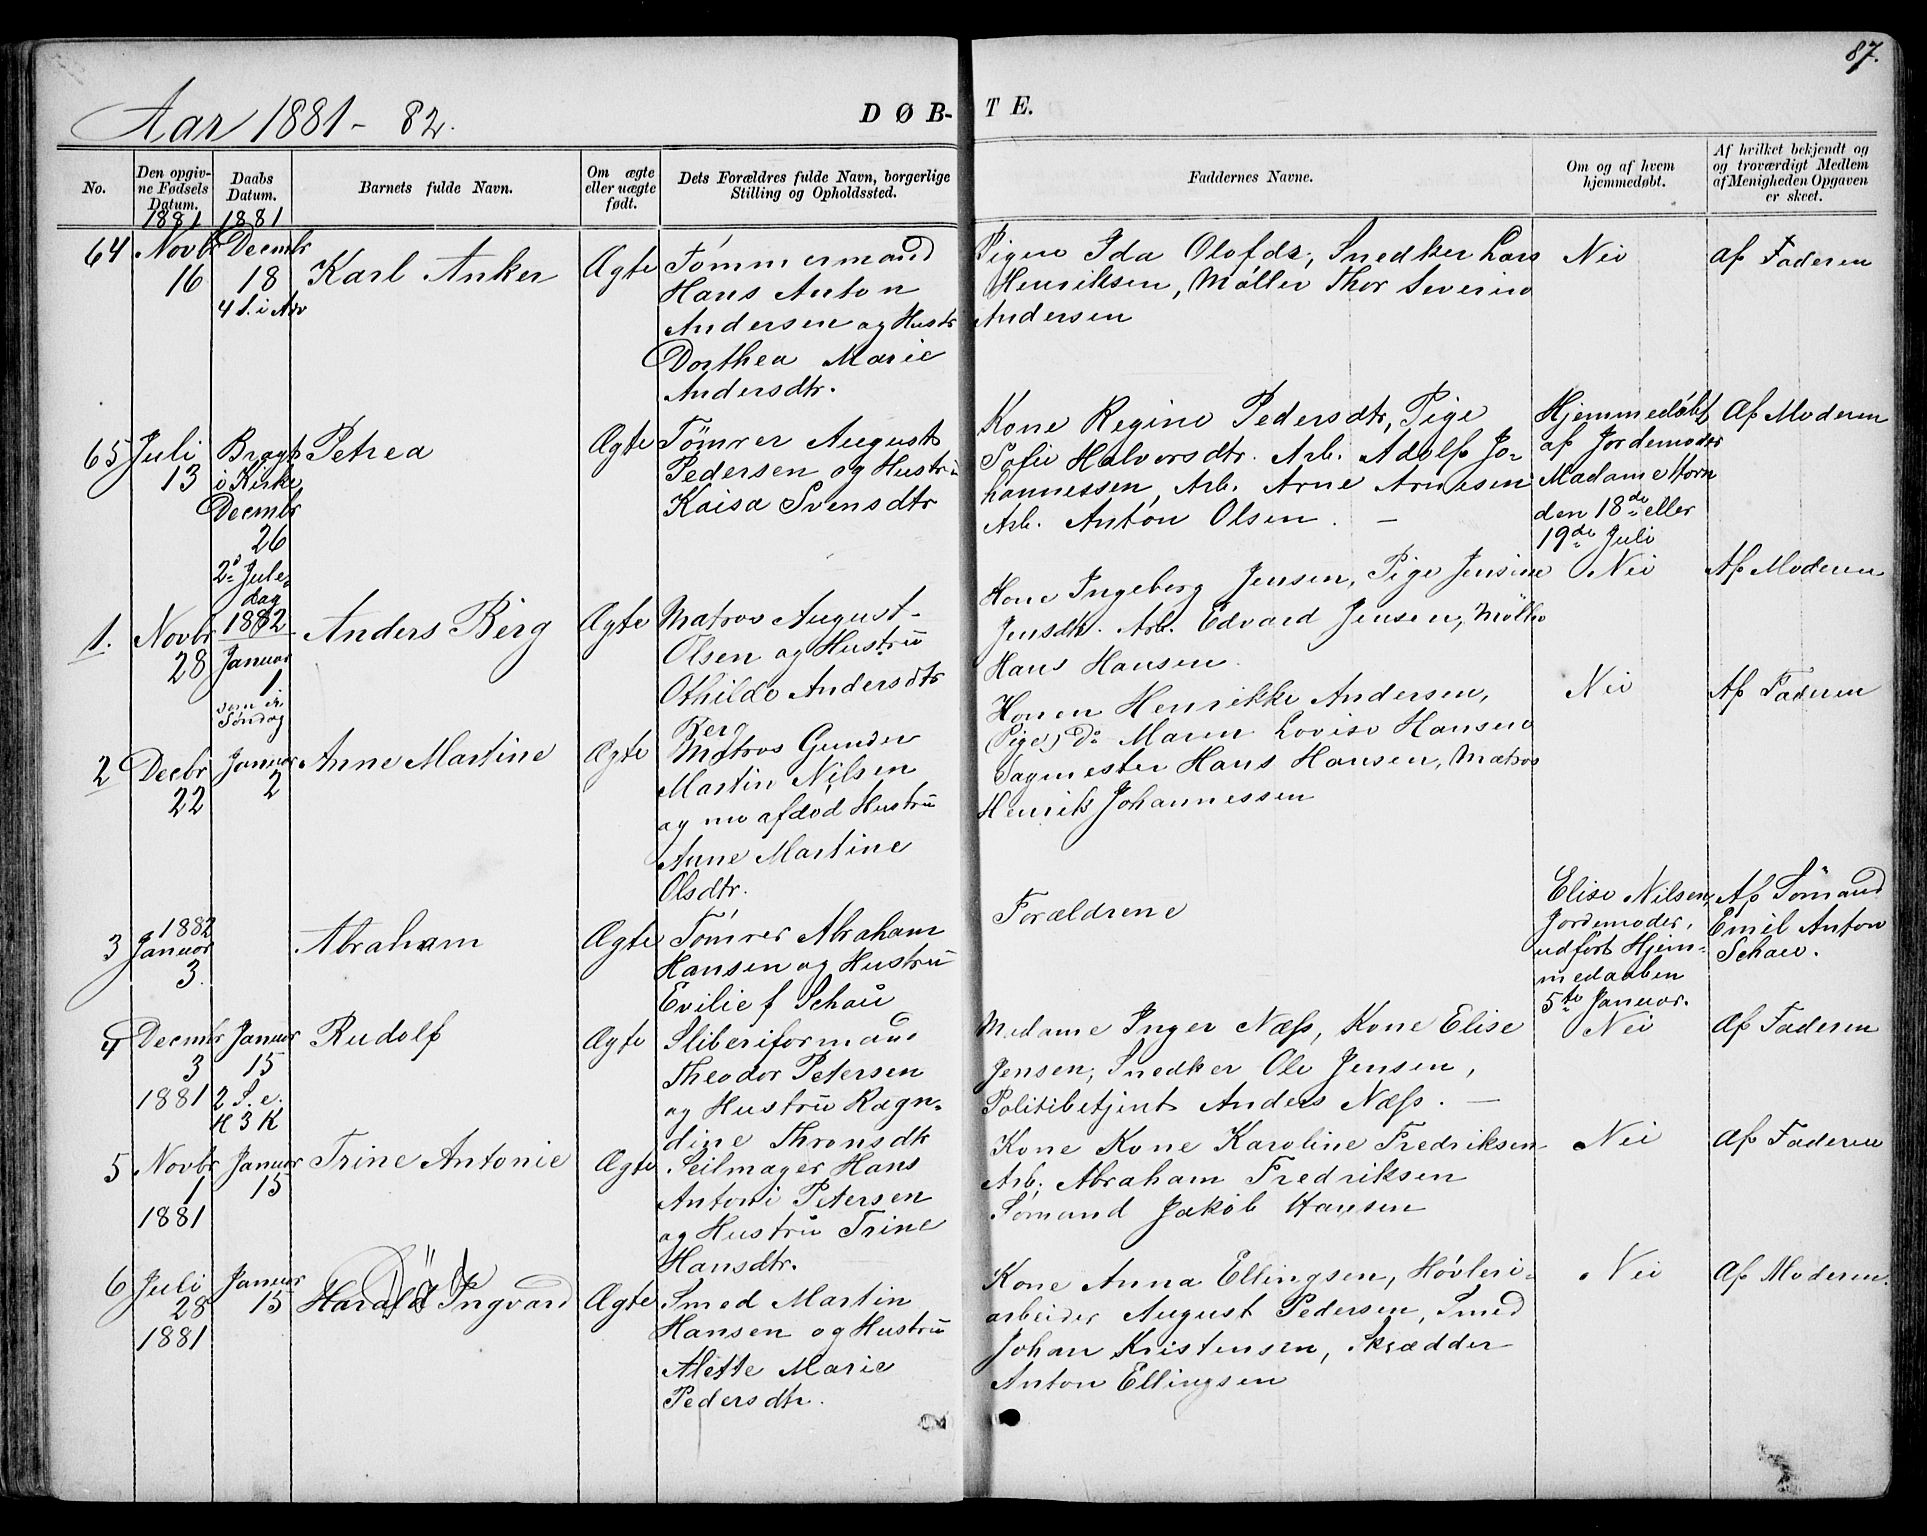 87.
Aar 1881 - 82.
DØB- TE.
No.
Den opgiv-
ne Fødsels
Datum.
Daabs
Datum.
Barnets fulde Navn.
Om ægte
eller uægte
født.
Dets Forældres fulde Navn, borgerlige
Stilling og Opholdssted.
Faddernes Navne.
Om og af hvem
hjemmedøbt.
Af hvilket bekjendt og
og troværdigt Medlem
af Menigheden Opgaven
er skeet.
1881
1881
64
Novbr
16
Decmbr
18
4 S. i Adv
Karl Anker
Ægte
Tömmermand
Hans Anton
Andersen og Hustr
Dorthea Marie
Andersdtr.
Pigen Ida Olofdr, Snedker Lars
Henriksen, Møller Thor Severin
Andersen
Nei
af Faderen
65
Juli
13
Bragt
i Kirke
Decmbr
26
2d Jule-
dag
Petrea
Ægte
Tömrer August
Pedersen og Hustru
Kaisa Svensdtr
Kone Regine Pedersdtr, Pige
Sofie Halvorsdtr. Arb. Adolf Jo-
hannessen, Arb. Arne Arnesen
Arb. Anton Olsen. -
Hjemmedøbt
af Jordemoder
Madame Horn
den 18de eller
19de Juli
Af Moderen
1.
Novbr
28
1882
Januar
1
som er
Søndag
Anders Berg
Ægte
Matros August
Olsen og Hustru
Othilde Andersdtr
Berg
Kone Ingeborg Jensen, Pige Jensine
Jensdtr. Arb. Edvard Jensen, Møller
Hans Hansen.
Nei
Af Moderen
2
Decbr
22
Januar
2
Anne Martine
Ægte
Matros Gunder
Martin Nilsen
og nu afdød Hustru
Anne Martine
Olsdtr.
Konen Henrikke Andersen,
(Pige) Do Maren Lovise Hansen
Sagmester Hans Hansen, Matros
Henrik Johannessen
Nei
Af Faderen
3
1882
Januar
3.
Abraham
Ægte
Tömrer Abraham
Hansen og Hustru
Evilie f Schau
Forældrene
Elise Nilsen,
Jordemoder,
udført Hjem-
medaaben
5te Januar.
Af Sömand
Emil Anton
Schau.
4
Decmbr
3
1881
Januar
15
2 S. e.
H 3 K
Rudolf
Ægte
Sliberiformand
Theodor Petersen
og Hustru Ragn-
dine Thronsdtr
Madame Inger Næss, Kone Elise
Jensen, Snedker Ole Jensen,
Politibetjent Anders Næss. -
Nei
Af Faderen
5
Novbr
1
1881
Januar
15
Trine Antonie
Ægte
Seilmager Hans
Antoni Petersen
og Hustru Trine
Hansdtr.
Kone Kone Karoline Fredriksen
Arb. Abraham Fredriksen
Sömand Jakob Hansen
Nei
Af Faderen
6
Juli
28
1881
Januar
15
Död
Harald Ingvard
Ægte
Smed Martin
Hansen og Hustru
Alette Marie
Pedersdtr.
Kone Anna Ellingsen, Høvleri-
arbeider August Pedersen, Smed
Johan Kristensen, Skrædder
Anton Ellingsen
Nei
Af Moderen.